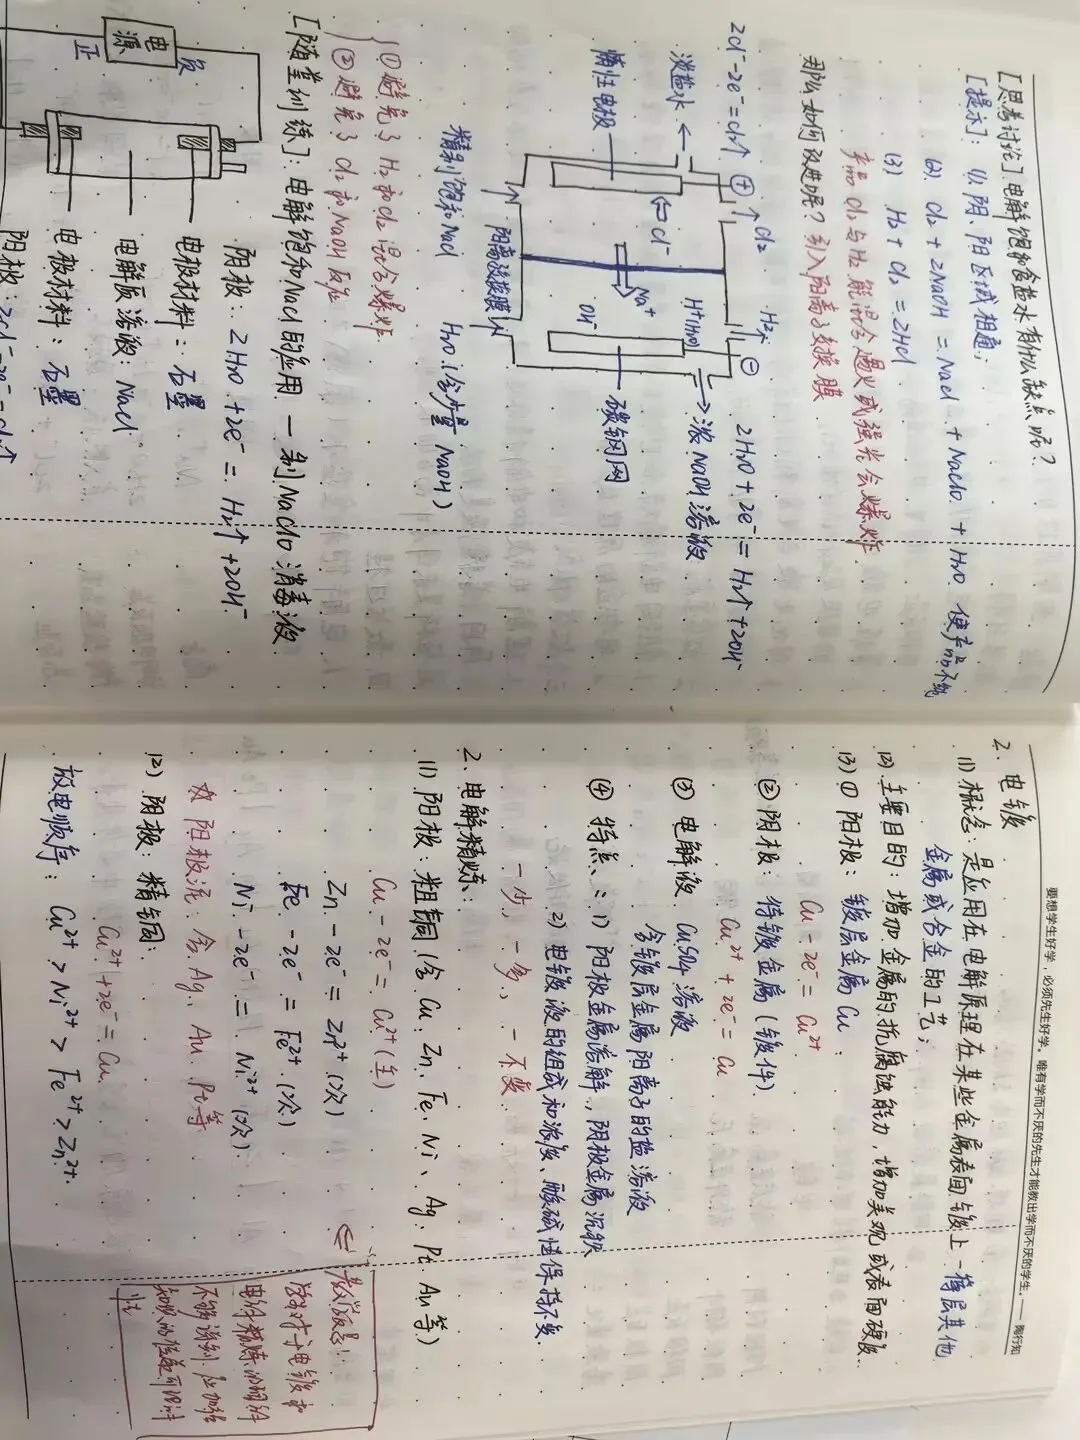 [思考讨论] 电解饱和食盐水有什么缺点呢?
[提示]: (1). 阴、阳区域相通;
(2). Cl₂ + 2NaOH = NaCl + NaClO + H₂O 使产品不纯
(3) H₂ + Cl₂ = 2HCl
产品 Cl₂ 与 H₂ 能混合遇火或强光会爆炸
那么如何改进呢? 引入阳离子交换膜
2Cl⁻-2e⁻=Cl₂↑ ⊕ ↑Cl₂ H₂↑ ⊖ 2H₂O+2e⁻=H₂↑+2OH⁻
淡盐水 ← Cl⁻ H⁺(H₂O) → 浓NaOH溶液
惰性电极 Na⁺ OH⁻ 碳钢网
阳离子交换膜
精制饱和NaCl H₂O (含少量NaOH)
① 避免了 H₂ 和 Cl₂ 混合爆炸
② 避免了 Cl₂ 和 NaOH 反应
[随堂训练]: 电解饱和NaCl的应用 — 制NaClO消毒液
阴极: 2H₂O+2e⁻=H₂↑+2OH⁻
电源
正 负
电极材料: 石墨
电解质溶液: NaCl
电极材料: 石墨
阳极: 2Cl⁻-2e⁻=Cl₂↑
要想学生好学,必须先生好学。唯有学而不厌的先生才能教出学而不厌的学生。—— 陶行知
2. 电镀
(1) 概念: 是应用在电解原理在某些金属表面镀上一薄层其他
金属或合金的工艺;
(2) 主要目的: 增加金属的抗腐蚀能力, 增加美观或表面硬度.
(3) ① 阳极: 镀层金属 Cu:
Cu-2e⁻=Cu²⁺
② 阴极: 待镀金属 (镀件)
Cu²⁺+2e⁻=Cu
③ 电解液 CuSO₄ 溶液
含镀层金属阳离子的盐溶液
④ 特点: 1) 阳极金属溶解, 阴极金属沉积
2) 电镀液的组成和浓度、酸碱性保持不变
一少, 一多, 一不变
2. 电解精炼:
(1) 阳极: 粗铜 (含 Cu、Zn、Fe、Ni、Ag、Pt、Au等)
Cu-2e⁻=Cu²⁺(主)
Zn-2e⁻=Zn²⁺(次)
Fe-2e⁻=Fe²⁺(次)
Ni-2e⁻=Ni²⁺(次)
☆ 阳极泥: 含 Ag、Au、Pt等
(2) 阴极: 精铜:
Cu²⁺+2e⁻=Cu
放电顺序: Cu²⁺>Ni²⁺>Fe²⁺>Zn²⁺
教学反思!
学生对于电镀和
电解精炼的理解
不够深刻, 应加强